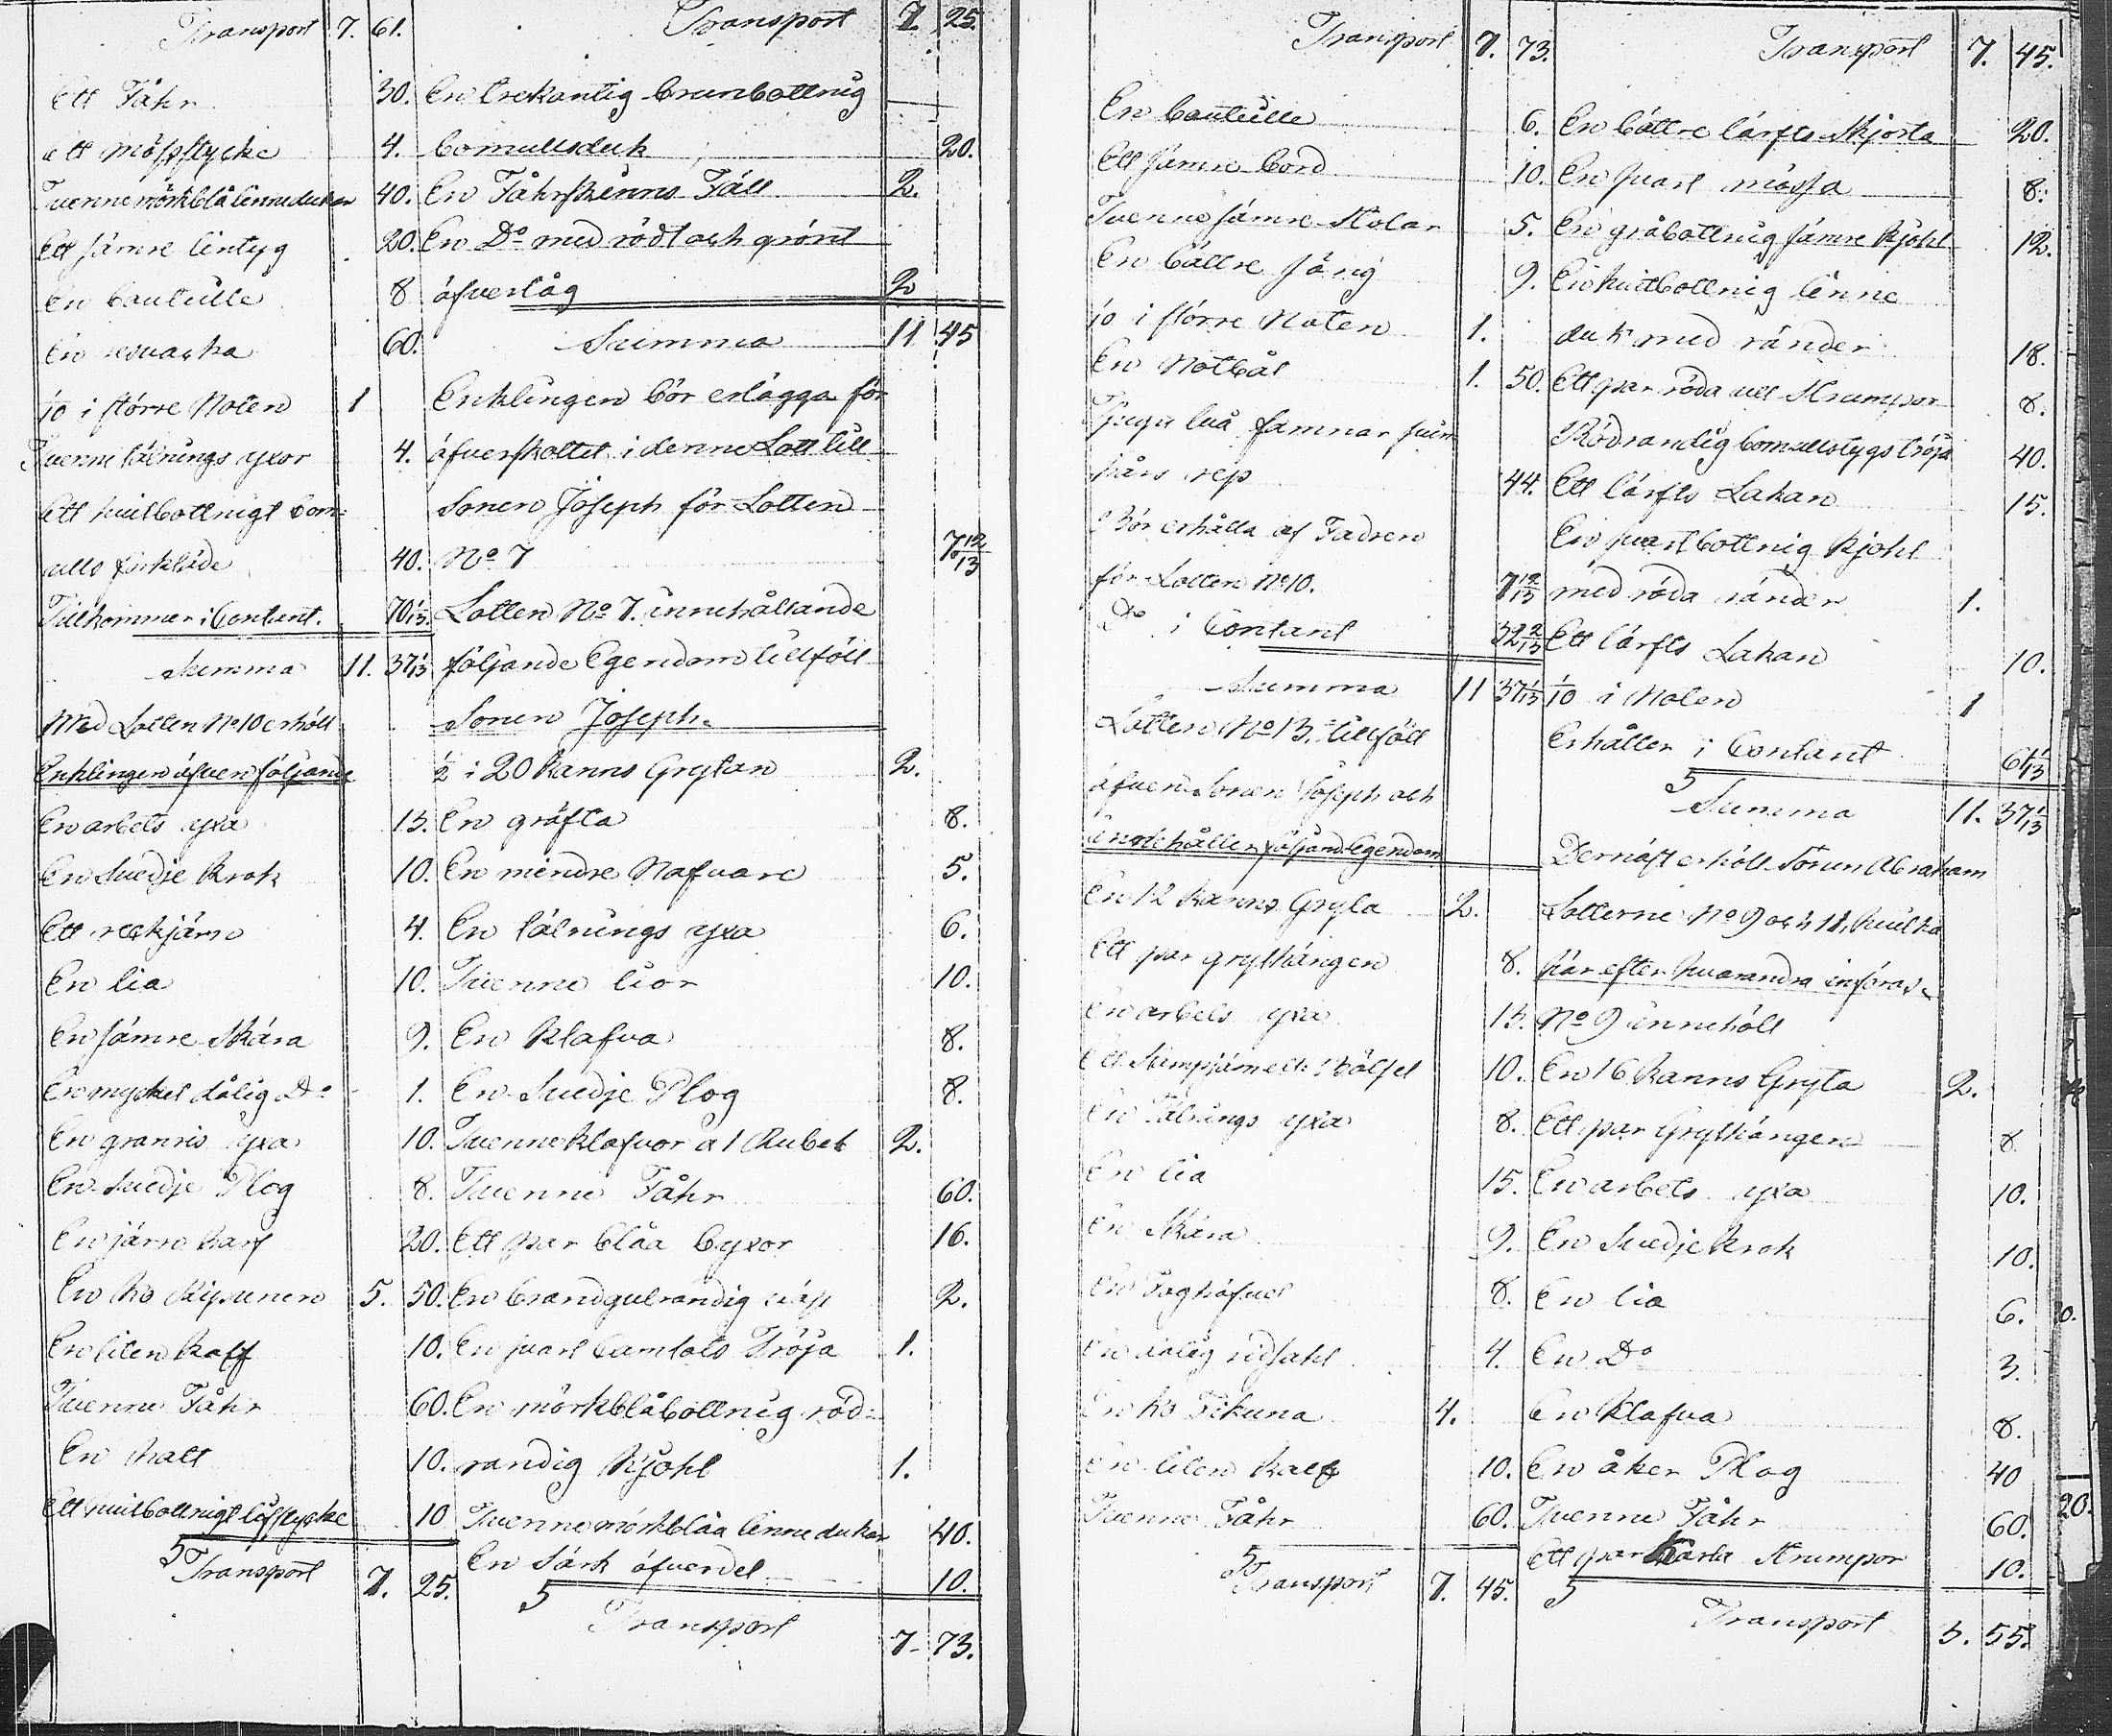 Transport 7. 61.
Ett Fåhr 30.
ett mösstycke 4.
Tvenne mörkblå linnedukar 40.
Ett sämre lintyg 20.
En bouteille 8
En 60.
1/10 i större Noten 1
Tvenne tälnings yxor 4.
Ett hvitbottnigt bom:
ulls förkläde 40.
Tillkommer i Content. 70 1/13.
Summa 11. 37 1/13
Med Lotten No 10 erhöll
Enklingen äfven följande
En arbets yxa 15.
En Svedje krok 10.
Ett rekjärn 4.
En lia 10.
En sämre Skära 9.
En mycket dålig Do 1.
En granris yxa 10.
En Svedje Plog 8.
En järn karf 20.
En Ko 5. 50.
En liten Kalf 10.
Tvenne Fåhr 60.
En hatt 10.
Ett hvitbottnigt lifstycke 10
Transport 7. 25.
Transport 7. 25.
En trekantig brunbottnig
bomullsduk 20.
En Fåhrskinns Fäll 2.
En Do med rödt och grönt
öfverlåg 2
Summa 11 45
Enklingen bör erlägga för
öfverskottet i denne Lott till
Sonen Joseph för Lotten
No 7 7 12/13
Lotten No 7. innehållande
följande Egendom tillföll
Sonen Joseph.
1/2 i 20 Kanns Grytan 2.
En gräfta 8.
En mindre Nafvare 5.
En tälnings yxa 6.
Tvenne lior 10.
En Klafva 8.
En Svedje Plog 8.
Tvenne Klafvor a 1 Rubel 2.
Tvenne Fåhr 60.
Ett par blåa byxor 16.
En brandgulrandig 2.
En svart Camlots Tröja 1.
En mörkblåbottnig röd:
randig Kjohl 1.
Tvenne mörkblåa linnedukar 40.
En Särk öfverdel 10.
Transport 7. 73.
Transport 7. 73.
En bouteille 6.
Ett sämre bord 10.
Tvenne sämre Stolar 5.
En bättre säng 9.
1/10 i större Noten 1.
En Notbåt 1. 50.
Tjugu två famnar
rep 44.
Bör erhålla af Fadren
för Lotten No 10. 7 12/13
Do i Contant 32 2/13
Summa 11 37 1/13
Lotten No 13. tillföll
äfven Sonen Joseph och
innehåller följand. Egendom
En 12 Kanns Gryta 2.
Ett par grythängen 8.
En arbets yxa 15.
Ett 10.
En Tälnings yxa 8.
En lia 15.
En Skära 9.
En 8.
En dålig 4.
En Ko 4.
En liten Kalf 10.
Tvenne Fåhr 60.
Transport 7. 45.
Transport 7. 45.
En bättre lärfts Skjorta 20.
En svart mössa 8.
En gråbottnig sämre Kjohl 12.
En hvitbottnig linne
duk med ränder 18.
Ett par röda ull Strumpor 8.
Rödrandig bomullstygs tröja 40.
Ett lärfts Lakan 15.
En svartbottnig Kjohl
med röda ränder 1.
Ett lärfts Lakan 10.
1/10 i Noten 1
Erhåller i Contant 61 1/13
Summa 11. 37 1/13
Dernäst erhöll Sonen Abraham
Lotterne No 9 och 11, hvilka
här efter hvarandra införas.
No 9 innehöll
En 16 Kanns Gryta 2.
Ett par Grythängen 8
En arbets yxa 10.
En Svedje Krok 10.
En lia 6.
En Do 3.
En Klafva 8.
En åker Plog 40
Tvenne Fåhr 60.
Ett par Strumpor 10.
Transport 3. 55.